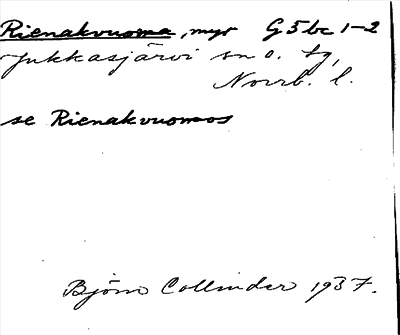 Rienakvuoma, myr G5bc 1-2
Jukkasjärvi sn o. tg,
Norrb. l.
se Rienakvuomos
Björn Collinder 1937.